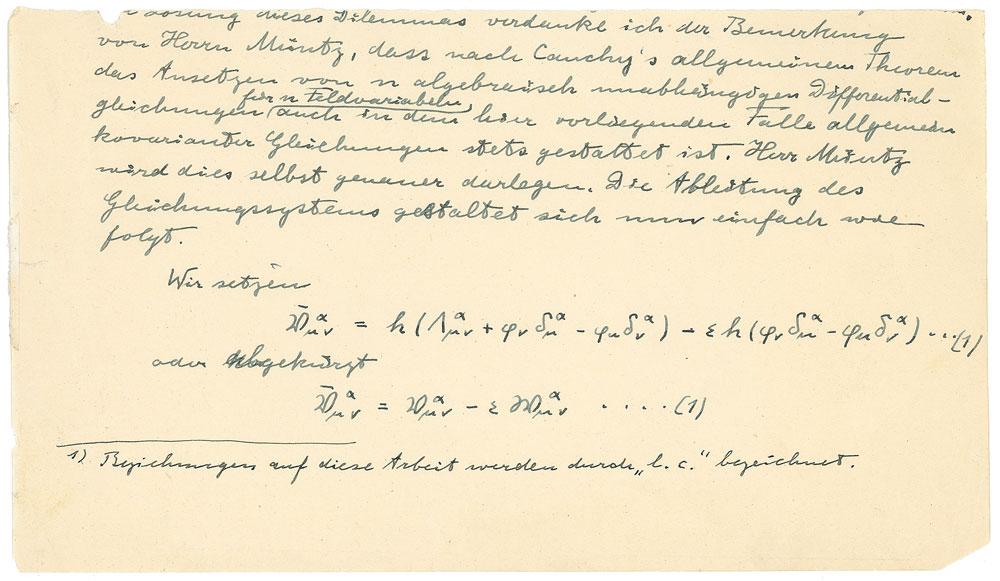 Lösung dieses Dilemmas verdanke ich der Bemerkung
von Herrn Müntz, dass nach Cauchy's allgemeinem Theorem
das Ansetzen von n algebraisch unabhängigen Differential-
für n Feldvariabeln
gleichungen auch in dem hier vorliegenden Falle allgemein
kovarianter Gleichungen stets gestattet ist. Herr Müntz
wird dies selbst genauer darlegen. Die Ableitung des
Gleichungssystems gestaltet sich nun einfach wie
folgt.
Wir setzen
𝔙̄^α_μν = h(Λ^α_μν + φ_ν δ^α_μ - φ_μ δ^α_ν) - εh(φ_ν δ^α_μ - φ_μ δ^α_ν) ...(1)
oder abgekürzt
𝔙̄^α_μν = 𝔙^α_μν - ε 𝔚^α_μν ....(1)
1). Beziehungen auf diese Arbeit werden durch „l. c.“ bezeichnet.